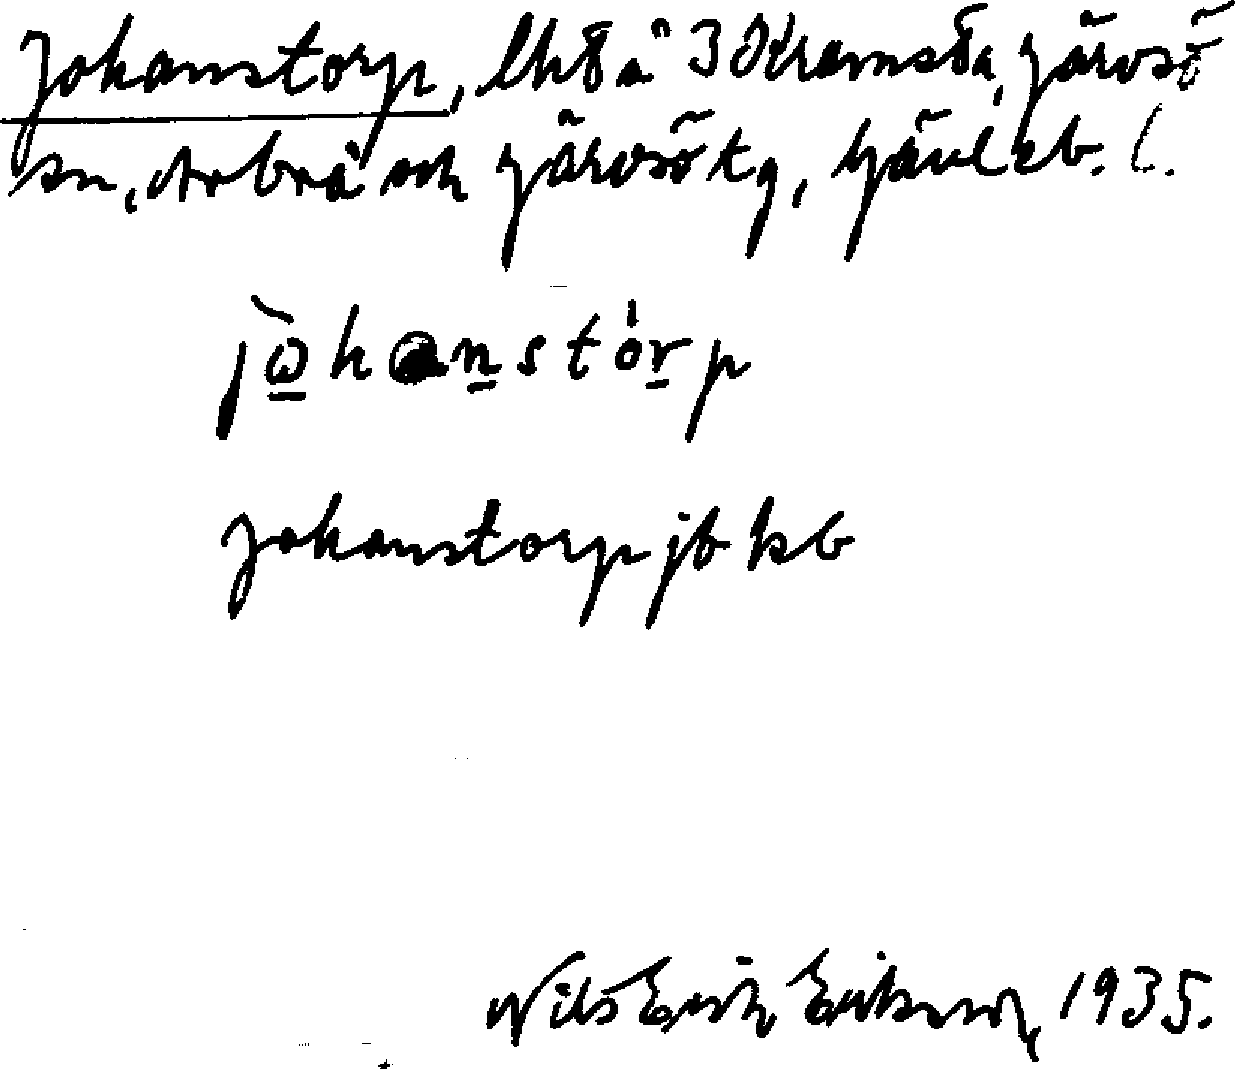 Johanstorp, lht å 3 Kramsta, Järvsö
sn, Arbrå och Järvsö tg, Gävleb. l.
jo̲han̲stór̲p
Johanstorp jb kb
Nils Erik Eriksson, 1935.